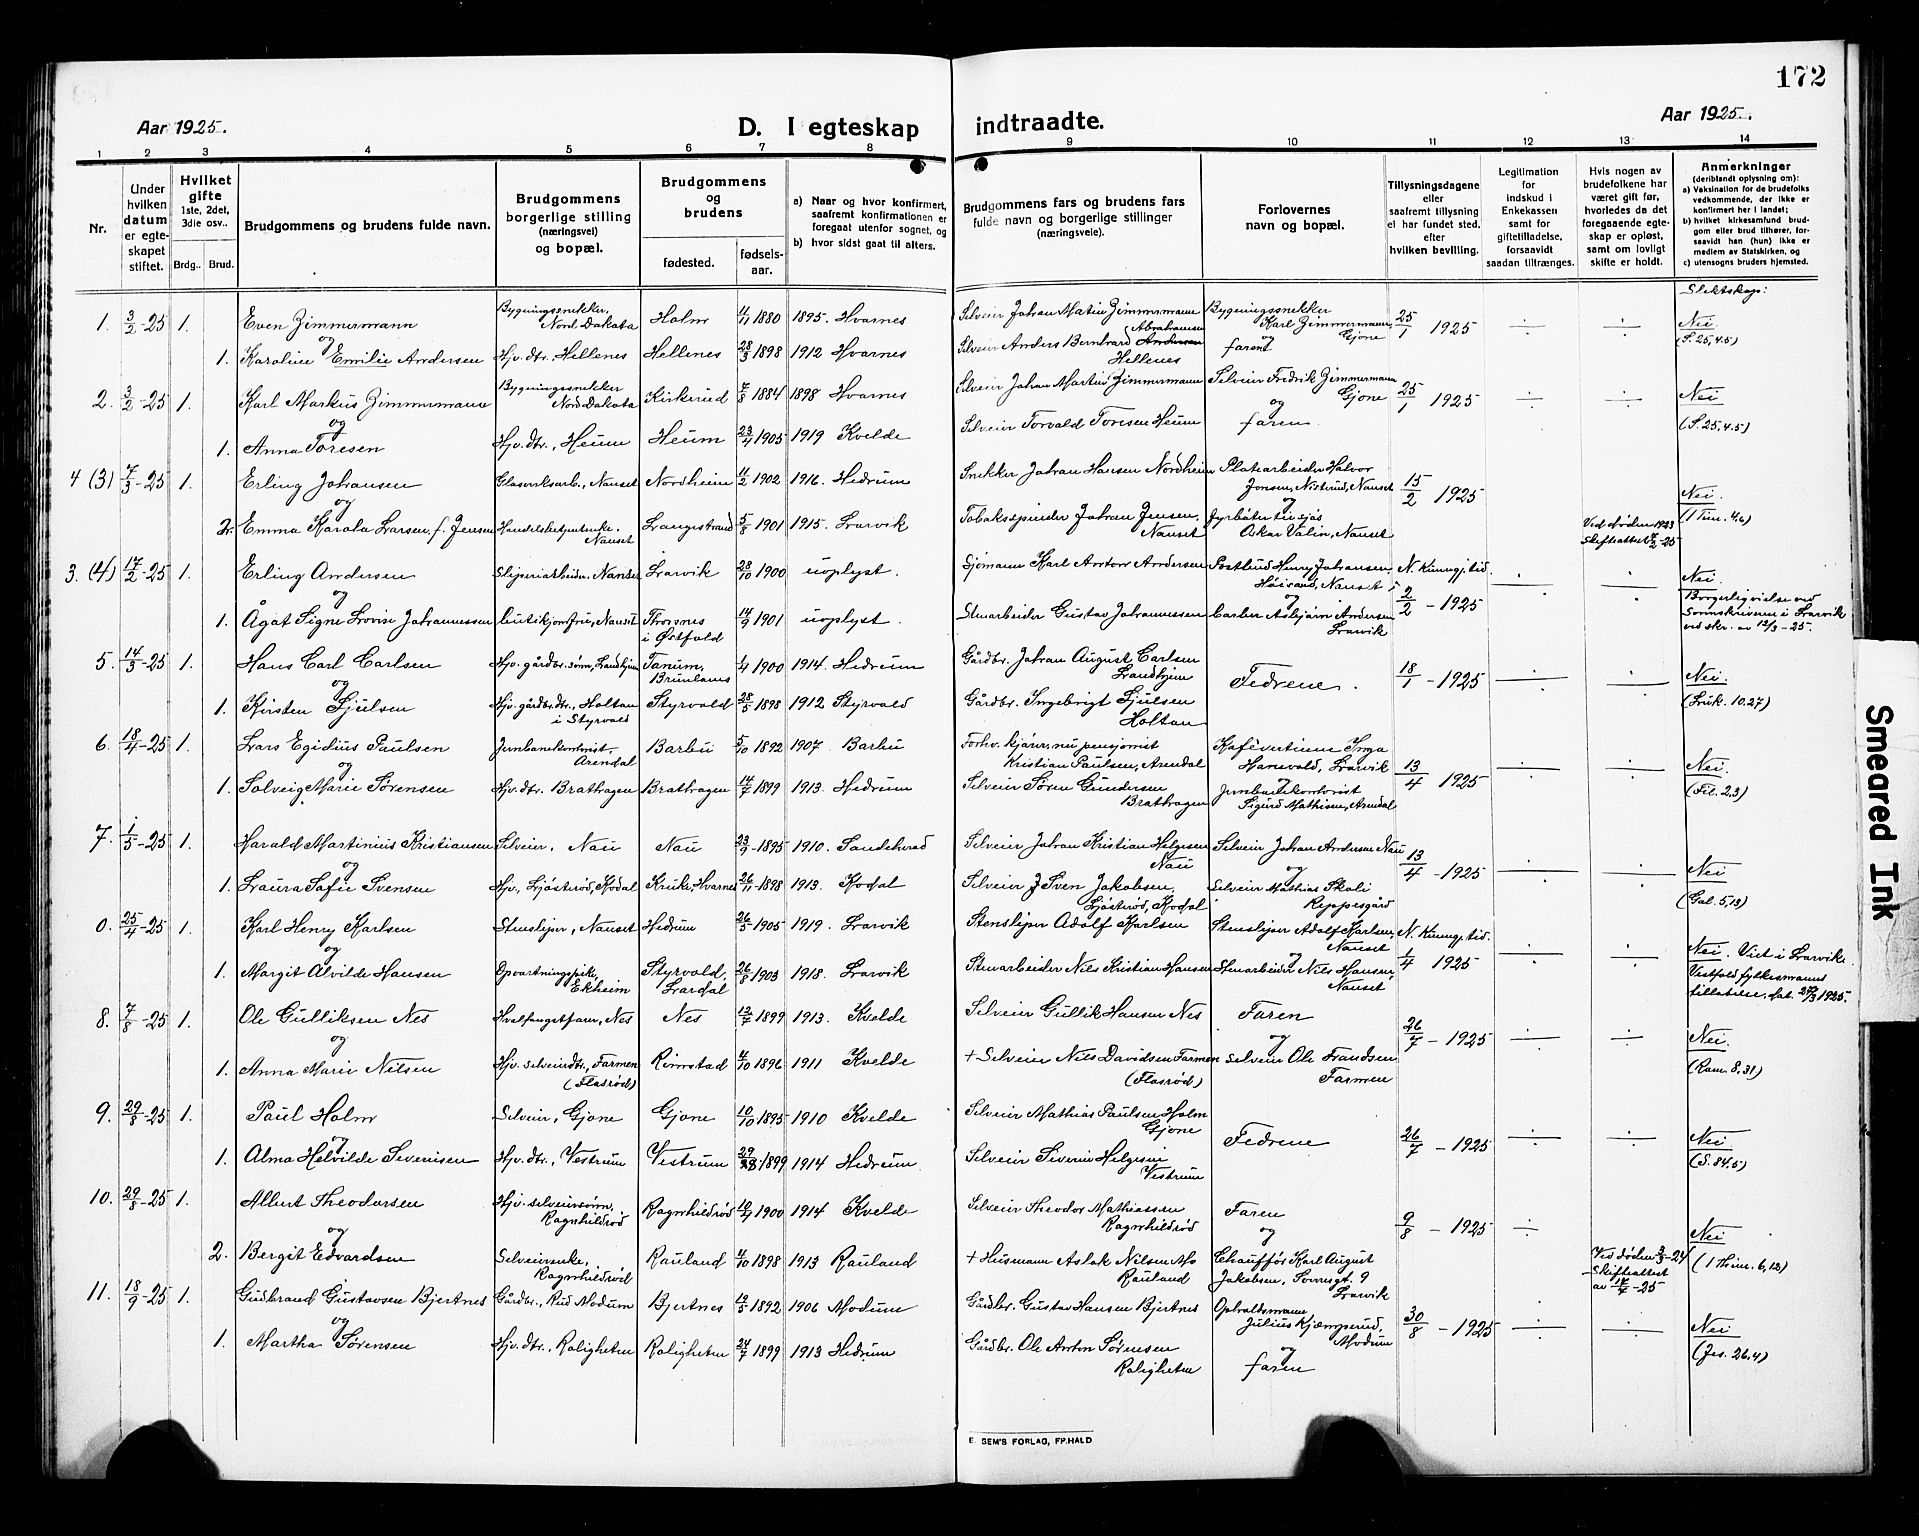 172
Aar 1925.
D. I egteskap indtraadte.
Aar 1925.
1 2 3 4 5 6 7 8 9 10 11 12 13 14
Nr.
Under hvilken datum er egteskapet stiftet.
Hvilket gifte 1ste, 2det, 3die osv..
Brdg.. Brud.
Brudgommens og brudens fulde navn.
Brudgommens borgerlige stilling (næringsvei) og bopæl.
Brudgommens og brudens
fødested.
fødsels-aar.
a) Naar og hvor konfirmert, saafremt konfirmationen er foregaat utenfor sognet, og
b) hvor sidst gaat til alters.
Brudgommens fars og brudens fars fulde navn og borgerlige stillinger (næringsveie).
Forlovernes navn og bopæl.
Tillysningsdagene eller saafremt tillysning ei har fundet sted, efter hvilken bevilling.
Legitimation for indskud i Enkekassen samt for giftetilladelse, forsaavidt saadan tiltrænges.
Hvis nogen av brudefolkene har været gift før, hvorledes da det foregaaende egteskap er opløst, samt om lovligt skifte er holdt.
Anmerkninger
(deriblandt oplysning om):
a) Vaksination for de brudefolks vedkommende, der ikke er konfirmert her i landet;
b) hvilket kirkesamfund brudgom eller brud tilhører, forsaavidt han (hun) ikke er medlem av Statskirken, og
c) utensogns bruders hjemsted.
Slektskap:
1. 3/2-25 1. Even Zimmermann Bygningssnekker Nord Dakota Holm 4/11 1880 1895. Hvarnes Selveier Johan Martin Zimmermann Bygningssnekker Karl Zimmermann, Gjone 25/1 1925 Nei.
og
1. Karoline Emilie Andersen Hjv. dtr. Hellenes Hellenes 28/3 1898 1912 Hvarnes Selveier Anders Bernhard Andersen Abrahamsen Hellenes og faren (S. 25, 4.5)
2. 3/2-25 1. Karl Markus Zimmermann Bygningssnekker Nord Dakota Kirkerud 7/8 1884 1898 Hvarnes Selveier Johan Martin Zimmermann Selveier Fredrik Zimmermann Gjone 25/1 1925 Nei
og
1. Anna Toresen Hjv. dtr., Heum Heum 23/4 1905 1919 Kvelde Selveier Torvald Toresen Heum og faren (S. 25, 4.5)
4 (3) 7/3-25 1. Erling Johansen Glasverksarb., Nanset Nordheim 11/2 1902 1916. Hedrum Snekker Johan Hansen Nordheim Platearbeider Halvor Jonsen, Nisterud, Nanset 15/2 1925 Nei.
og
2. Emma Karola Larsen, f. Jensen Handelsbetjentenke. Nanset Langestrand 5/8 1901 1915. Larvik Tobaksspinder Johan Jensen, Nanset og Fyrbøter tilsjøs Oskar Valin, Nanset Ved døden 1923 Skifteattest 7/2-25 (1 Tim. 4.6)
3. (4) 17/2-25 1. Erling Andersen Sliperiarbeider, Nanset Larvik 28/10 1900 uoplyst. Sjømann Karl Anton Andersen Postbud Henry Johansen, Nanset N. Kunngj. tid. Nei.
og
1. Ågåt Signe Lovise Johannessen butikjomfru, Nanset Thorsnes i Østfold 14/9 1901 uoplyst. Stenarbeider Gustav Johannessen og Asbjørn Andersen Larvik 2/2 - 1925 Borgerlig vielse ved Sorenskriveren i Larvik ved skr. av 12/3-25.
5. 14/3-25 1. Hans Carl Carlsen Hjv. gårdbr. sønn, Landhjem Tanum, Brunlanes 1/4 1900 1914. Hedrum Gårdbr. Johan August Carlsen Landhjem Fedrene. 18/1 - 1925 Nei.
og
1. Kirsten Sjulsen Hjv. gårdbr. dtr., Holtan i Styrvold Styrvold 28/5 1898 1912 Styrvold Gårdbr. Ingebrigt Sjulsen Holtan (Luk. 10.27)
6. 18/4-25 1. Lars Egidius Paulsen Jernbanekontorist, Arendal Barbu 5/10 1892 1907. Barbu Forhv. kjører, nu pensjonist Kristian Paulsen, Arendal Kafévertinne Inga Hanevold, Larvik 13/4 1925 Nei.
og
1. Solveig Marie Sørensen Hjv. dtr. Brathagen Brathagen 14/7 1899 1913. Hedrum Selveier Søren Gundersen Brathagen og Jernbanekontorist Sigurd Mathisen, Arendal (Fil. 2,3)
7. 1/5-25 1. Harald Martinius Kristiansen Selveier, Nau Nau 23/9-1895 1910. Sandeherad Selveier Johan Kristian Helgesen Nau Selveier Johan Andersen Nau 13/4 - 1925 Nei
og
1. Laura Sofie Svensen Hjv., Ljøsterød, Kodal Kruke, Hvarnes 26/11-1898 1913. Kodal Selveier Sven Jakobsen, Ljøsterød, Kodal og Selveier Mathias Skoli Reppesgård (Gal. 5,13)
0. 25/4-25 1. Karl Henry Karlsen Stensliper, Nanset Hedrum 26/5 1905 1919. Larvik Stensliper Adolf Karlsen Stensliper Adolf Karlsen, Nanset N. Kunngj. tid. Nei. Viet i Larvik.
og
1. Margit Alvilde Hansen Opvartningspike, Ekheim Styrvold, Lardal 26/8 1903 1918. Larvik Stenarbeider Nils Kristian Hansen og Stenarbeider Nils Hansen, Nanset 1/4 1925 Vestfold fylkesmanns tillatelse, dat. 27/3 1925.
8. 7/8-25 1. Ole Gulliksen Nes Hvalfangstfarer, Nes Nes 12/7 1899 1913. Kvelde Selveier Gullik Hansen Nes Faren 26/7 - 1925 Nei.
og
1. Anna Marie Nilsen Hjv. selveierdtr., Farmen (Flasrød) Rimstad 4/10 1896 1911 Kvelde + Selveier Nils Davidsen Farmen (Flasrød) og selveier Ole Frandsen Farmen (Rom. 8, 31)
9. 29/8-25 1. Paul Holm Selveier, Gjone Gjone 10/10 1895 1910 Kvelde Selveier Mathias Paulsen Holm Gjone Fedrene 26/7 - 1925 Nei
og
1. Alma Helvilde Severinsen Hjv. dtr., Vestrum Vestrum 29/8 1899 1914 Hedrum. Selveier Severin Helgesen Vestrum (S. 84.5)
10. 29/8-25 1. Albert Theodorsen Hjv. selveiersønn, Ragnhildrød Ragnhildrød 19/4 1900 1914 Kvelde Selveier Theodor Mathiassen Ragnhildrød Faren 9/8 - 1925 Nei
og
2. Bergit Edvardsen Selveierenke, Ragnhildrød Rauland 4/10 1898 1913 Rauland + Husmann Aslak Nilsen Mo Rauland og Chauffør Karl August Jakobsen, 9 Larvik Ved døden 3/3-24 Skifteattest av 17/4-25 (1 Thim. 6, 12)
11. 18/9-25 1. Gudbrand Gustavsen Bjertnes Gårdbr., Rud Modum Bjertnes 19/5 1892 1906 Modum Gårdbr. Gustav Hansen Bjertnes Opholdsmann, Julius Kjæmperud, Modum 30/8 - 1925 Nei
og
1. Martha Sørensen Hjv. dtr., Roligheten Roligheten 24/7 1899 1913 Hedrum Gårdbr. Ole Anton Sørensen Roligheten og faren (Jes. 26,4)
E. SEM'S FORLAG, FR.HALD
Smeared Ink